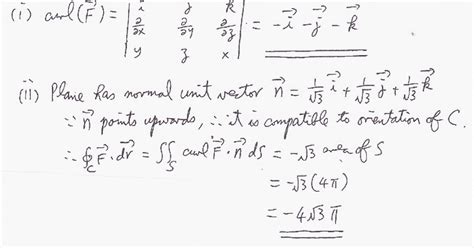 (i) curl(F⃗) = | i⃗ j⃗ k⃗ |
| ∂/∂x ∂/∂y ∂/∂z | = -i⃗ - j⃗ - k⃗
| y z x |
(ii) Plane has normal unit vector n⃗ = 1/√3 i⃗ + 1/√3 j⃗ + 1/√3 k⃗
∵ n⃗ points upwards, ∴ it is compatible to orientation of C.
∴ ∮_C F⃗ · dr⃗ = ∬_S curl F⃗ · n⃗ dS = -√3 area of S
= -√3 (4π)
= -4√3 π